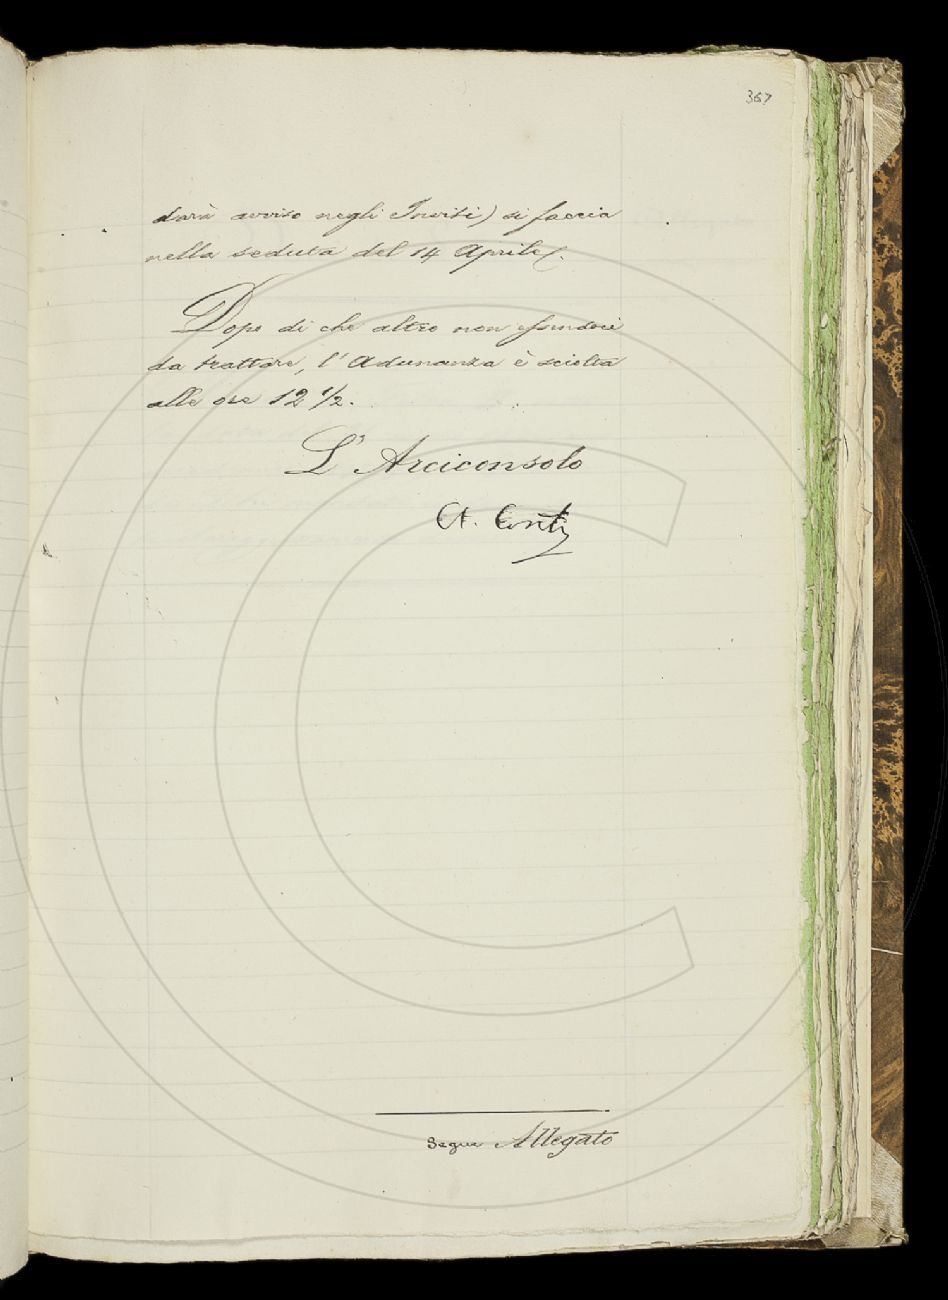 367
darà avviso negli Inviti) si faccia
nella seduta del 14 Aprile.
Dopo di che altro non essendoci
da trattare, l'Adunanza è sciolta
alle ore 12 1/2.
L'Arciconsolo
A. Conti
Segue Allegato